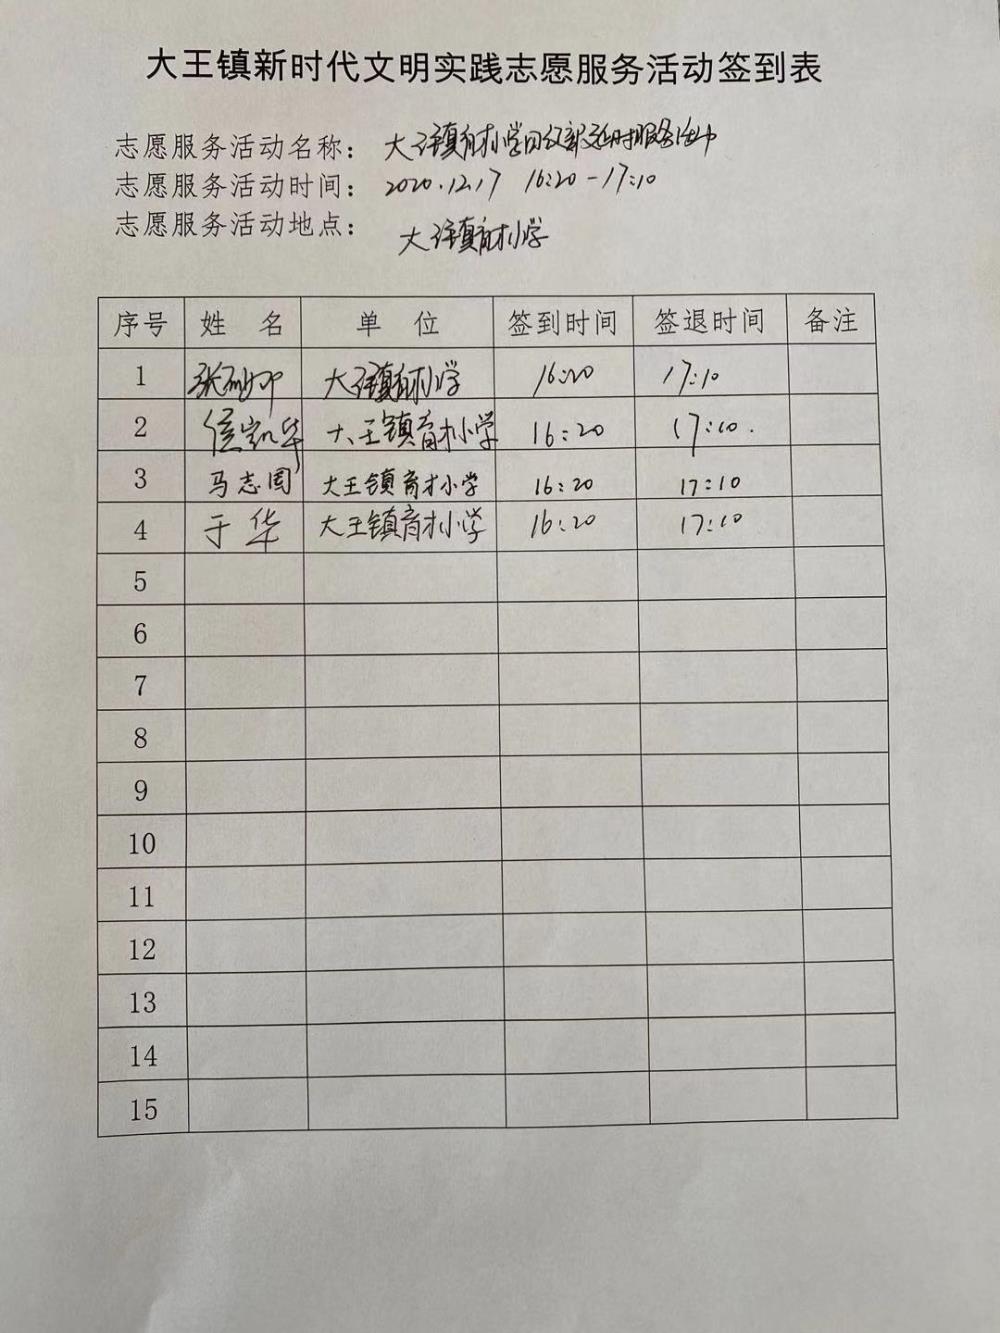 大王镇新时代文明实践志愿服务活动签到表
志愿服务活动名称： 大王镇育才小学四级部延时服务活动
志愿服务活动时间： 2020.12.17 16:20-17:10
志愿服务活动地点： 大王镇育才小学
序号 姓 名 单 位 签到时间 签退时间 备注
1 张 大王镇育才小学 16:20 17:10
2 侯凯华 大王镇育才小学 16:20 17:10.
3 马志国 大王镇育才小学 16:20 17:10
4 于华 大王镇育才小学 16:20 17:10
5
6
7
8
9
10
11
12
13
14
15